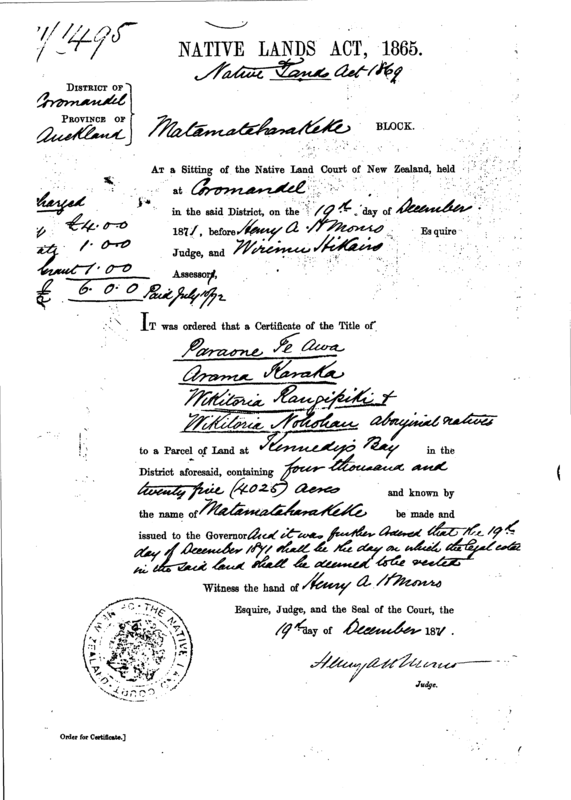 1495
NATIVE LANDS ACT, 1865.
Native Lands Act 1869
DISTRICT OF
Coromandel
PROVINCE OF
Auckland
Matamataharakeke BLOCK.
AT a Sitting of the Native Land Court of New Zealand, held
at Coromandel
in the said District, on the 19th day of December
1871, before Henry A. H Monro Esquire
Judge, and Wiremu Hikairo
Assessor,
harged
£4.00
1.00
1.00
£ 6.0.0 Paid July 10/72
IT was ordered that a Certificate of the Title of
Paraone Te Awa
Arama Karaka
Wikitoria Rangipiki &
Wikitoria Nohohau aboriginal natives
to a Parcel of Land at Kennedys Bay in the
District aforesaid, containing four thousand and
twenty five (4025) acres and known by
the name of Matamataharakeke be made and
issued to the Governor And it was further ordered that the 19th
day of December 1871 shall be the day on which the legal estate
in the said land shall be deemed to be vested
Witness the hand of Henry A H Monro
Esquire, Judge, and the Seal of the Court, the
19th day of December 1871.
Henry A H Monro
Judge.
THE NATIVE LAND COURT OF NEW ZEALAND
Order for Certificate.]